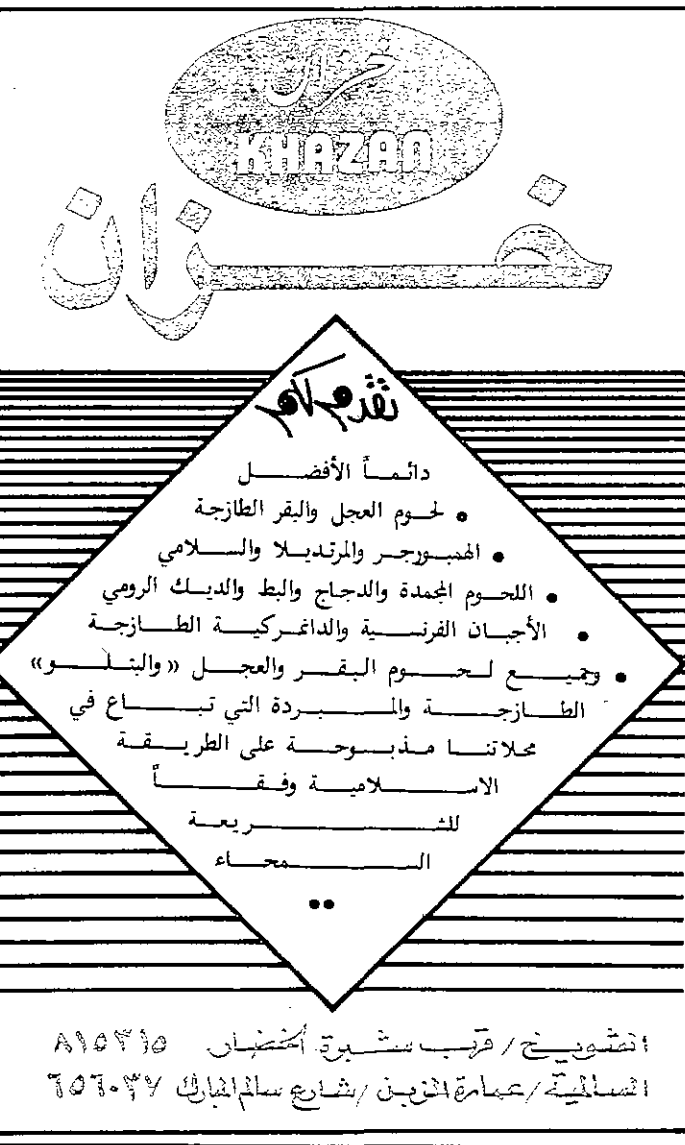 خزان
KHAZAN
خزان
نقدم لكم
دائماً الأفضل
• لحوم العجل والبقر الطازجة
• الهمبورجر والمرتديلا والسلامي
• اللحوم المجمدة والدجاج والبط والديك الرومي
• الأجبان الفرنسية والدانمركية الطازجة
• وجميع لحوم البقر والعجل «والبتلو»
الطازجة والمبردة التي تباع في
محلاتنا مذبوحة على الطريقة
الاسلامية وفقاً
للشريعة
السمحاء
••
الشويخ / قرب شبرة الخضار ٨١٥٣١٥
السالمية / عمارة الزبن / شارع سالم المبارك ٦٥٦٠٣٧